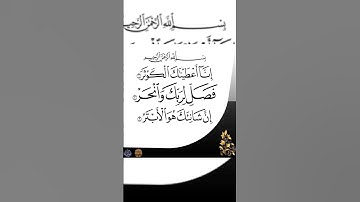 بِسْمِ اللَّهِ الرَّحْمَٰنِ الرَّحِيمِ
بِسْمِ اللَّهِ الرَّحْمَٰنِ الرَّحِيمِ
إِنَّا أَعْطَيْنَاكَ الْكَوْثَرَ
فَصَلِّ لِرَبِّكَ وَانْحَرْ
إِنَّ شَانِئَكَ هُوَ الْأَبْتَرُ